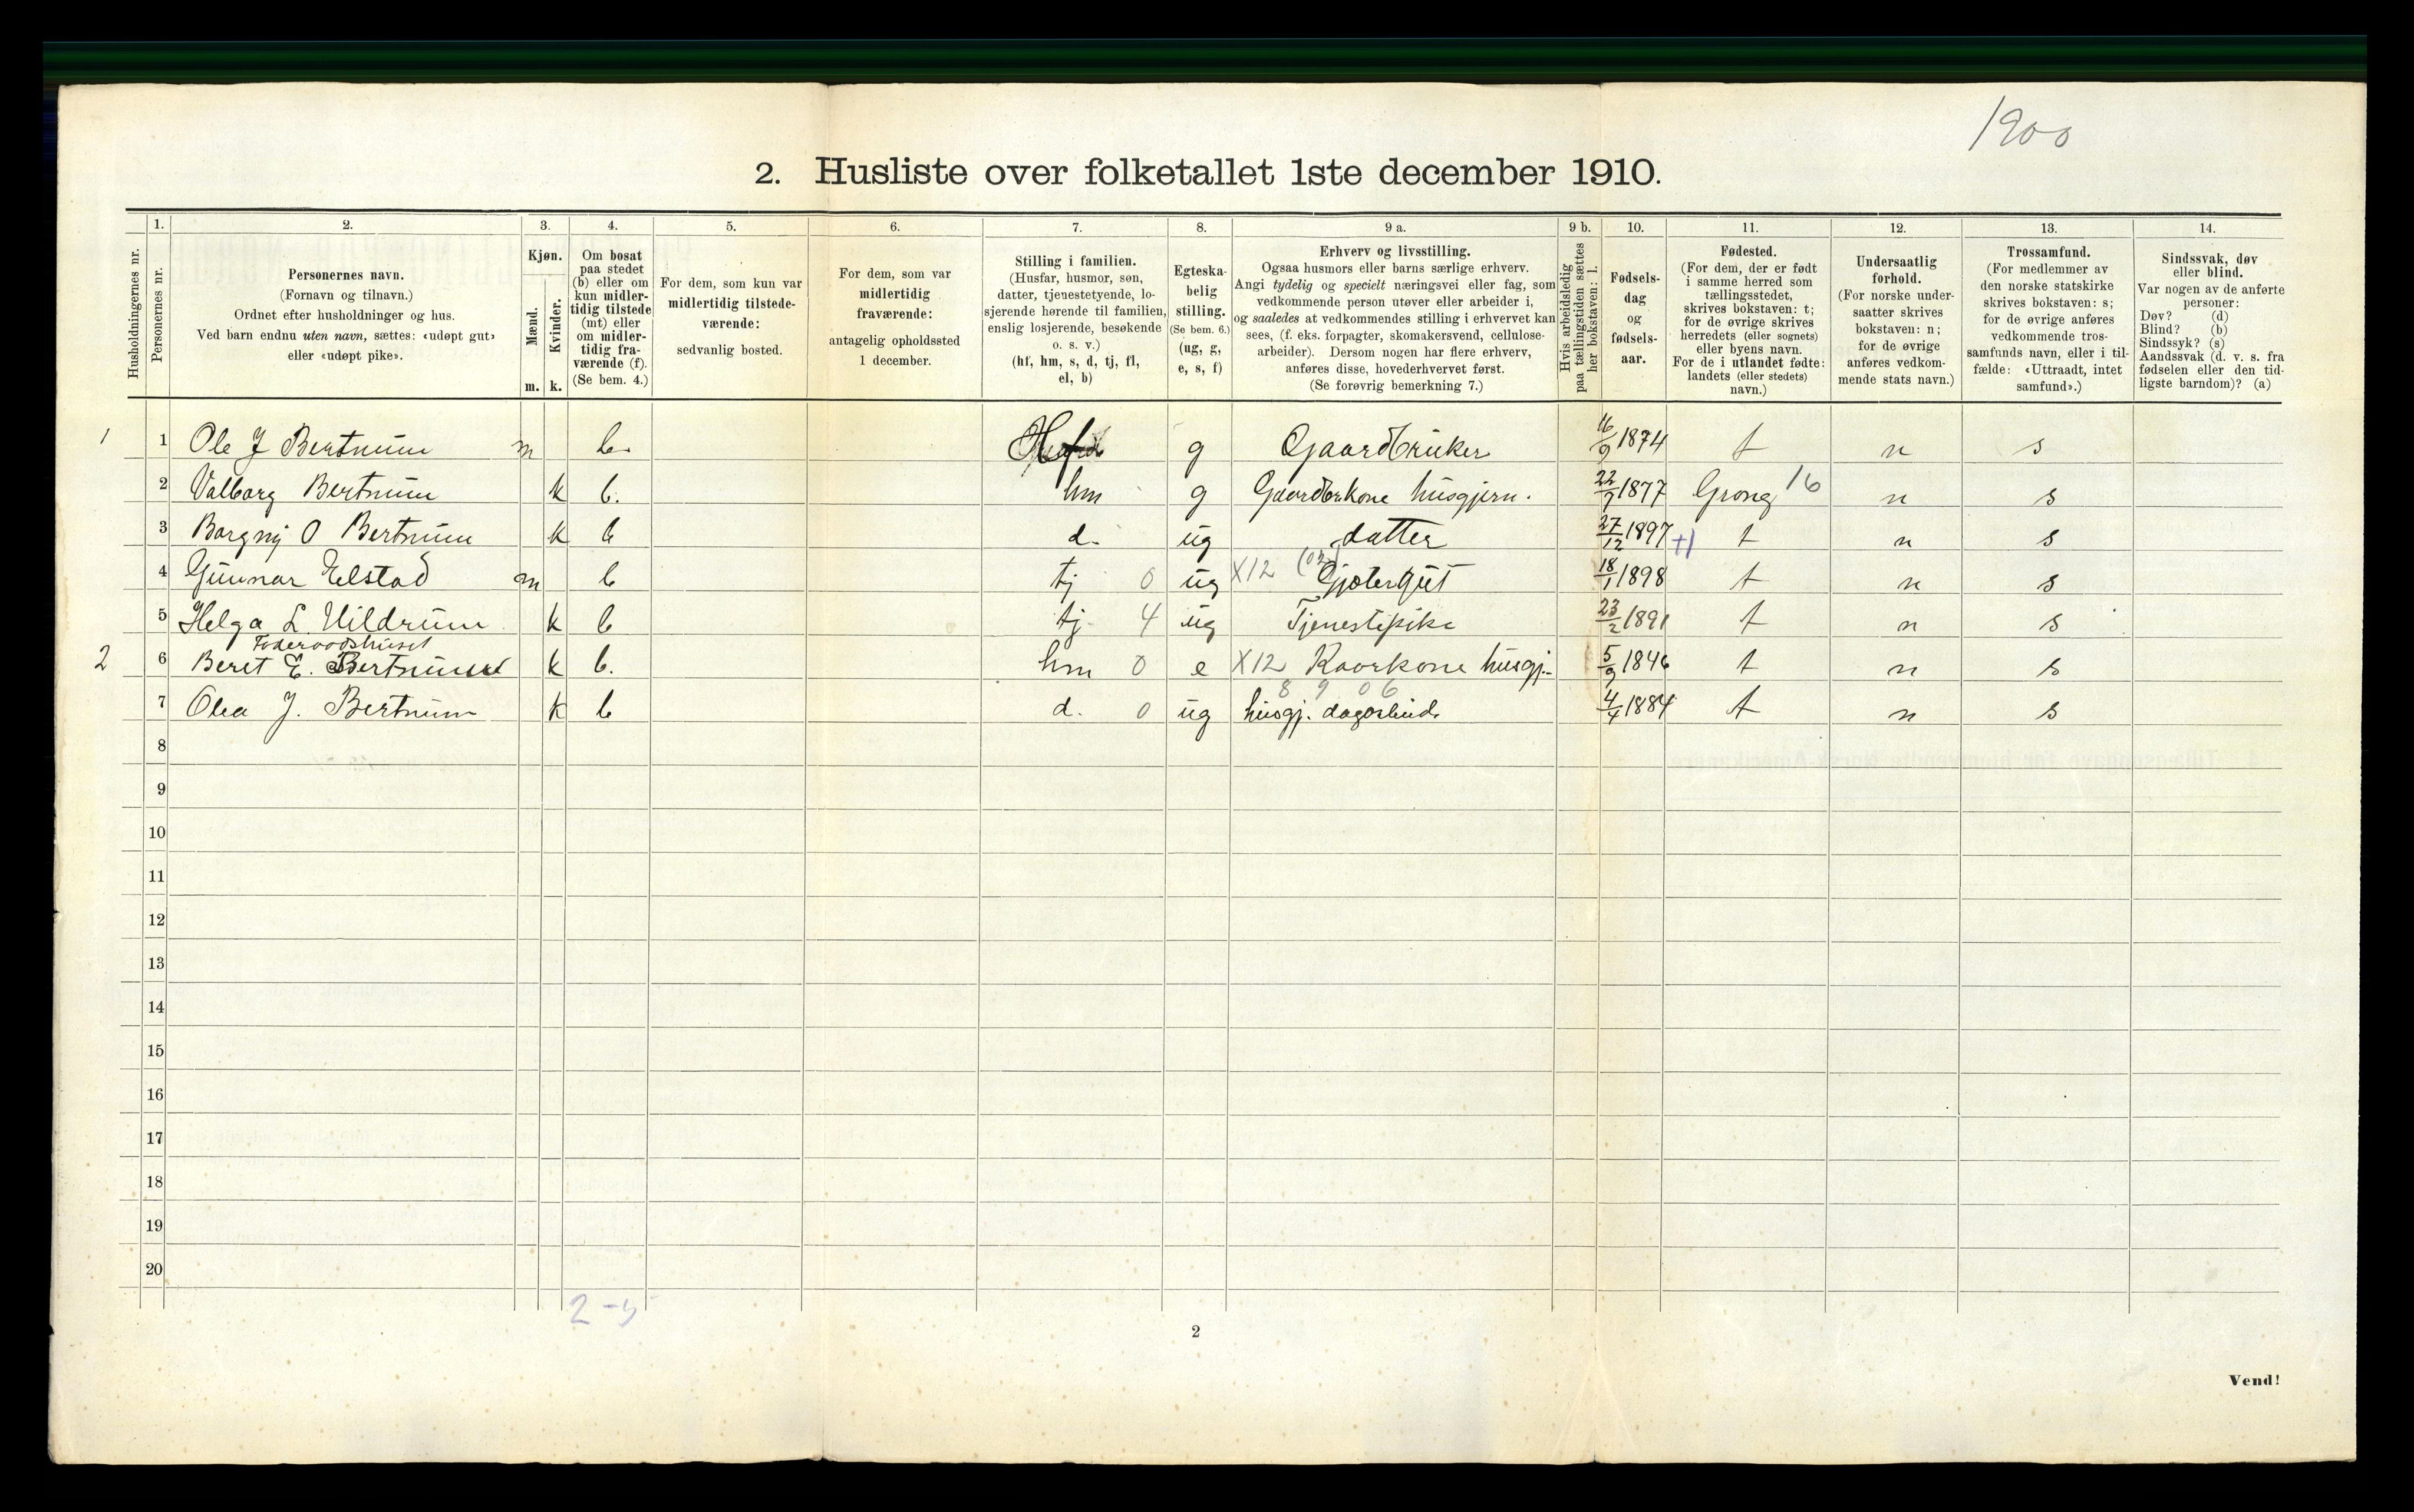 1900
2. Husliste over folketallet 1ste december 1910.
Husholdningernes nr.
1.
Personernes nr.
2.
Personernes navn.
(Fornavn og tilnavn.)
Ordnet efter husholdninger og hus.
Ved barn endnu uten navn, sættes: «udøpt gut»
eller «udøpt pike».
3.
Kjøn.
Mænd.
Kvinder.
m. k.
4.
Om bosat
paa stedet
(b) eller om
kun midler-
tidig tilstede
(mt) eller
om midler-
tidig fra-
værende (f).
(Se bem. 4.)
5.
For dem, som kun var
midlertidig tilstede-
værende:
sedvanlig bosted.
6.
For dem, som var
midlertidig
fraværende:
antagelig opholdssted
1 december.
7.
Stilling i familien.
(Husfar, husmor, søn,
datter, tjenestetyende, lo-
sjerende hørende til familien,
enslig losjerende, besøkende
o. s. v.)
(hf, hm, s, d, tj, fl,
el, b)
8.
Egteska-
belig
stilling.
(Se bem. 6.)
(ug, g,
e, s, f)
9 a.
Erhverv og livsstilling.
Ogsaa husmors eller barns særlige erhverv.
Angi tydelig og specielt næringsvei eller fag, som
vedkommende person utøver eller arbeider i,
og saaledes at vedkommendes stilling i erhvervet kan
sees, (f. eks. forpagter, skomakersvend, cellulose-
arbeider). Dersom nogen har flere erhverv,
anføres disse, hovederhvervet først.
(Se forøvrig bemerkning 7.)
9 b.
Hvis arbeidsledig
paa tællingstiden sættes
her bokstaven: l.
10.
Fødsels-
dag
og
fødsels-
aar.
11.
Fødested.
(For dem, der er født
i samme herred som
tællingsstedet,
skrives bokstaven: t;
for de øvrige skrives
herredets (eller sognets)
eller byens navn.
For de i utlandet fødte:
landets (eller stedets)
navn.)
12.
Undersaatlig
forhold.
(For norske under-
saatter skrives
bokstaven: n;
for de øvrige
anføres vedkom-
mende stats navn.)
13.
Trossamfund.
(For medlemmer av
den norske statskirke
skrives bokstaven: s;
for de øvrige anføres
vedkommende tros-
samfunds navn, eller i til-
fælde: «Uttraadt, intet
samfund».)
14.
Sindssvak, døv
eller blind.
Var nogen av de anførte
personer:
Døv? (d)
Blind? (b)
Sindssyk? (s)
Aandssvak (d. v. s. fra
fødselen eller den tid-
ligste barndom)? (a)
1 1 Ole J Bertnum m b. g Gaardbruker 16/9 1874 t n s
2 Valborg Bertnum k b. hm g Gaardbrkone husgjern. 22/7 1877 Grong 16 n s
3 Borgny O Bertnum k b d. ug datter 27/12 1897 t n s
4 Gunnar Elstad m b tj 0 ug X12 Gjætergut 18/1 1898 t n s
5 Helga L Uildrum k b tj 4 ug Tjenestepike 23/2 1891 t n s
Foderaadshuset
2 6 Beret E. Bertnum k b. hm 0 e X12 Kaarkone husgj. 5/9 1846 t n s
8 9 0 6
7 Olea J. Bertnum k b d. 0 ug husgj. dagarbeid. 4/4 1884 t n s
8
9
10
11
12
13
14
15
16
17
18
19
20
2-5
2
Vend!